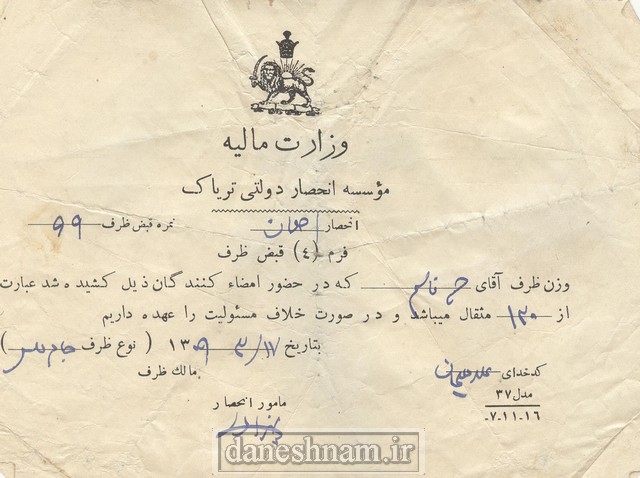 وزارت مالیه
مؤسسه انحصار دولتی تریاک
انحصار اصفهان نمره قبض ظرف ۹۹
فرم (٤) قبض ظرف
وزن ظرف آقای قاسم که در حضور امضاء کنندگان ذیل کشیده شد عبارت
از ۱۳۰ مثقال میباشد و در صورت خلاف مسئولیت را عهده داریم
بتاریخ ۱۷/۳/۱۳۰۹ ( نوع ظرف جام مس )
کدخدای مالک ظرف
مدل ۳۷
۷-۱۱-۱۶
مامور انحصار
daneshnam.ir